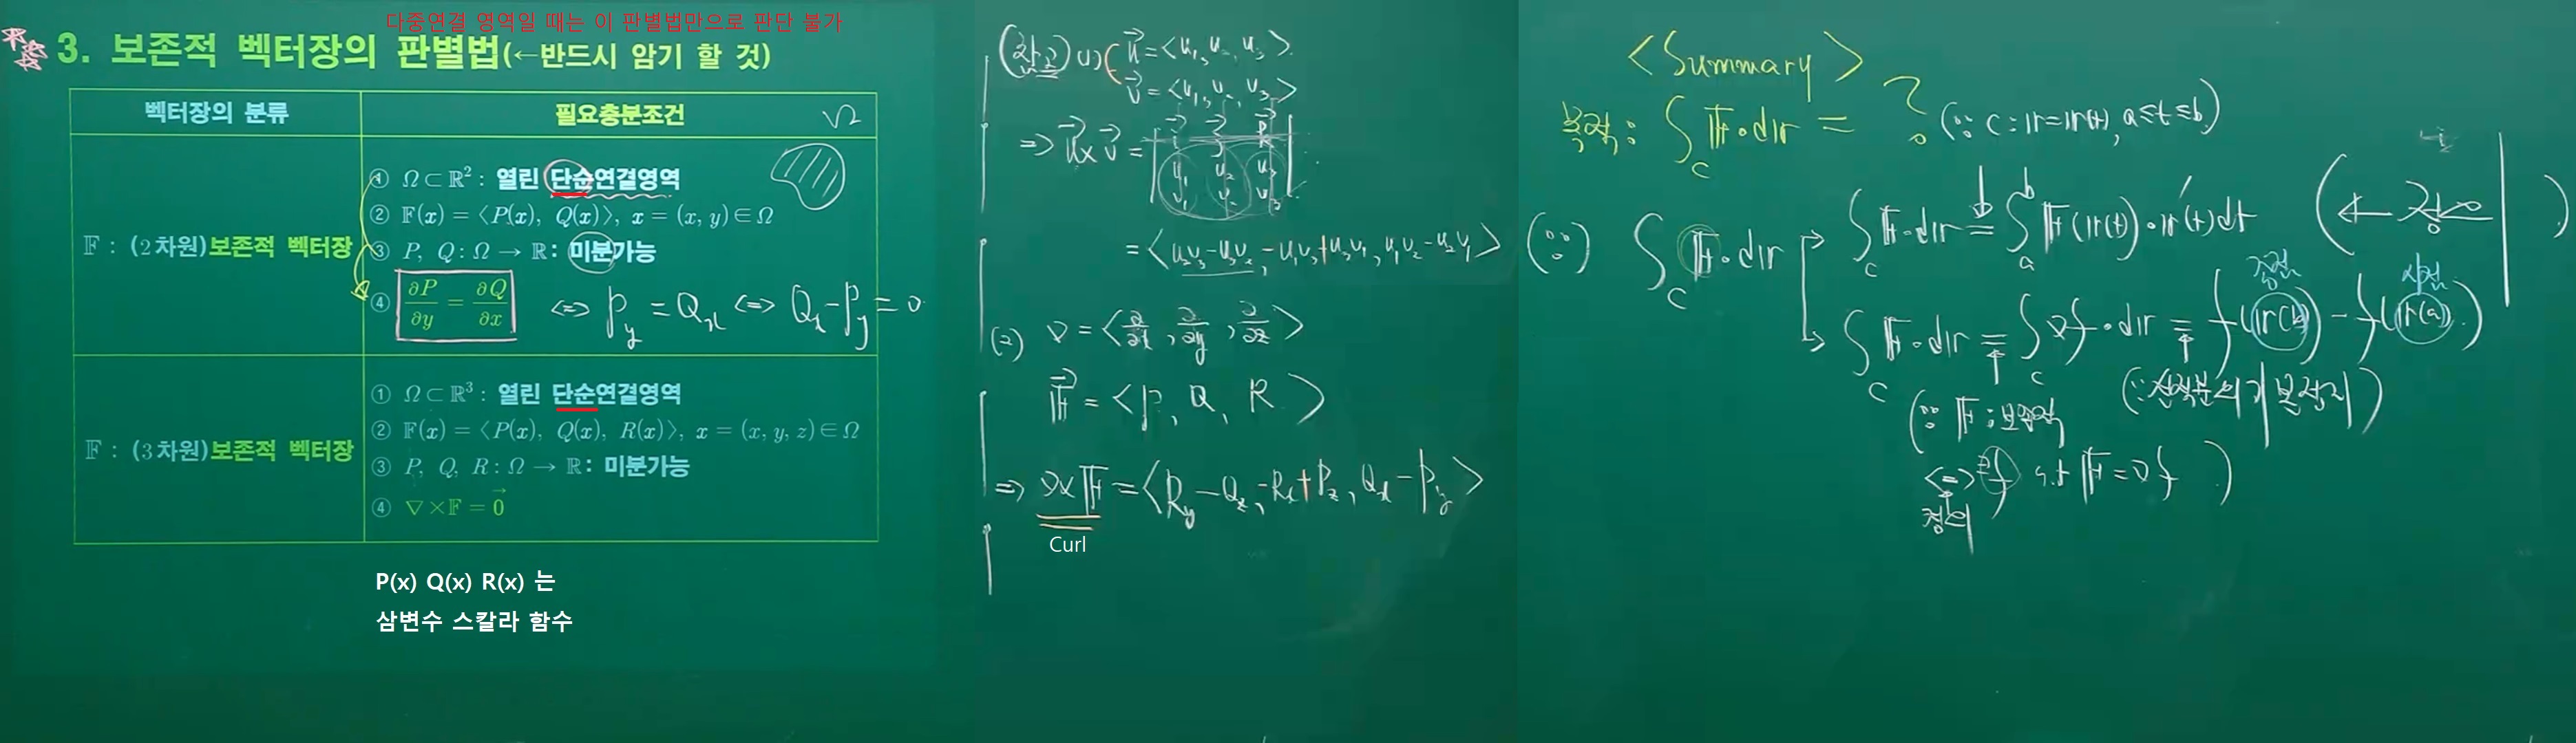 다중연결 영역일 때는 이 판별법만으로 판단 불가
3. 보존적 벡터장의 판별법(←반드시 암기 할 것)
벡터장의 분류
필요충분조건
Ω
𝔽 : (2차원)보존적 벡터장
① Ω ⊂ ℝ² : 열린 단순연결영역
② 𝔽(x) = ⟨P(x), Q(x)⟩, x = (x, y) ∈ Ω
③ P, Q : Ω → ℝ : 미분가능
④ ∂P/∂y = ∂Q/∂x ⇔ P_y = Q_x ⇔ Q_x - P_y = 0
𝔽 : (3차원)보존적 벡터장
① Ω ⊂ ℝ³ : 열린 단순연결영역
② 𝔽(x) = ⟨P(x), Q(x), R(x)⟩, x = (x, y, z) ∈ Ω
③ P, Q, R : Ω → ℝ : 미분가능
④ ∇×𝔽 = 0⃗
P(x) Q(x) R(x) 는
삼변수 스칼라 함수
(참고) (1) u⃗ = <u₁, u₂, u₃>
v⃗ = <v₁, v₂, v₃>
⇒ u⃗×v⃗ = | i⃗ j⃗ k⃗
u₁ u₂ u₃
v₁ v₂ v₃ |
= <u₂v₃-u₃v₂, -u₁v₃+u₃v₁, u₁v₂-u₂v₁>
(2) ∇ = <∂/∂x, ∂/∂y, ∂/∂z>
𝔽⃗ = <P, Q, R>
⇒ ∇×𝔽 = <R_y - Q_z, -R_x + P_z, Q_x - P_y>
Curl
<Summary>
목적 : ∫_C 𝔽·dr = ? (∵ C : r = r(t), a≤t≤b)
(∵) ∫_C 𝔽·dr
∫_C 𝔽·dr = ∫_a^b 𝔽(r(t))·r'(t)dt
∫_C 𝔽·dr = ∫_C ∇f·dr = f(r(b)) - f(r(a))
종점
시점
(∵ 선적분의 기본정리)
(∵ 𝔽 : 보존적
⇔ ∃f s.t 𝔽 = ∇f )
정의